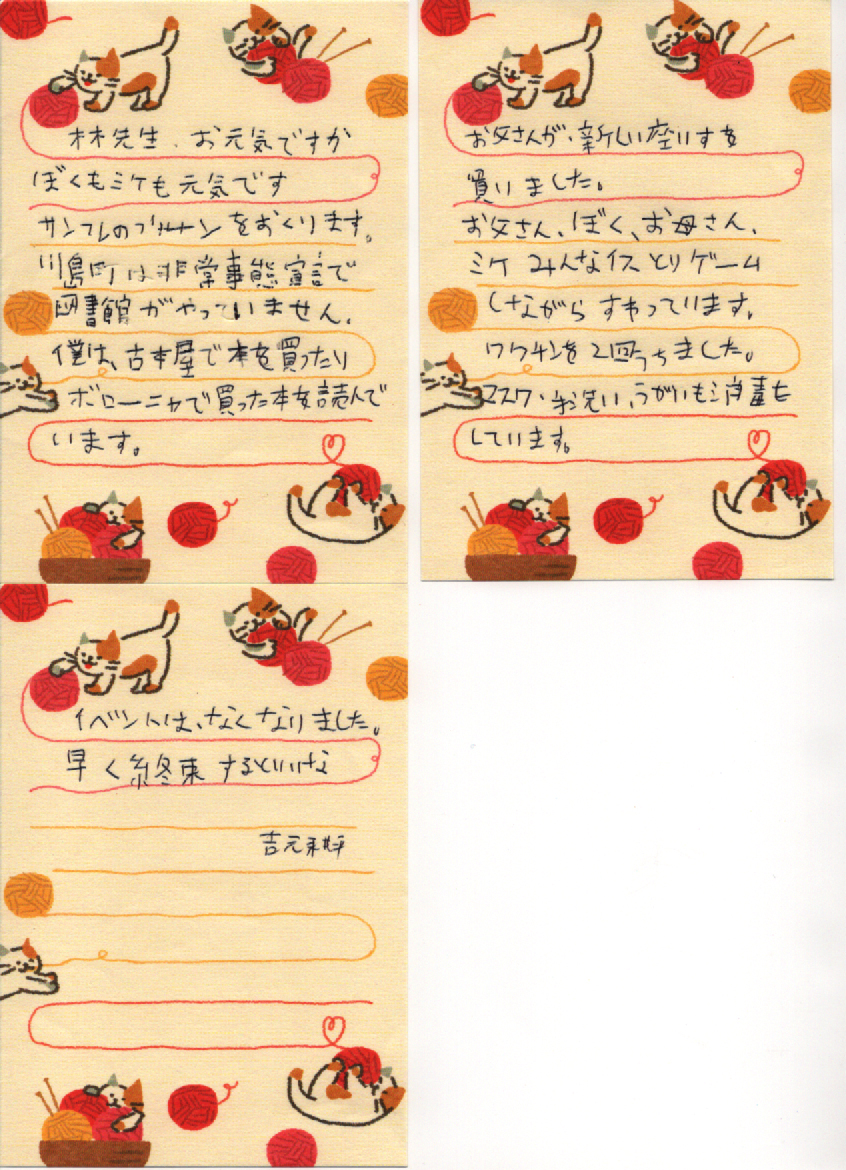 林先生、お元気ですか
ぼくもミケも元気です
サンフレのブルーナンをおくります。
川島町は非常事態宣言で
図書館がやっていません。
僕は、古本屋で本を買ったり
ボローニャで買った本を読んで
います。
お父さんが、新しい座いすを
買いました。
お父さん、ぼく、お母さん、
ミケ みんなイスとりゲーム
しながら すわっています。
ワクチンを2回うちました。
マスク・お洗い、うがいも消毒も
しています。
イベントは、なくなりました。
早く終束するといいな
吉元